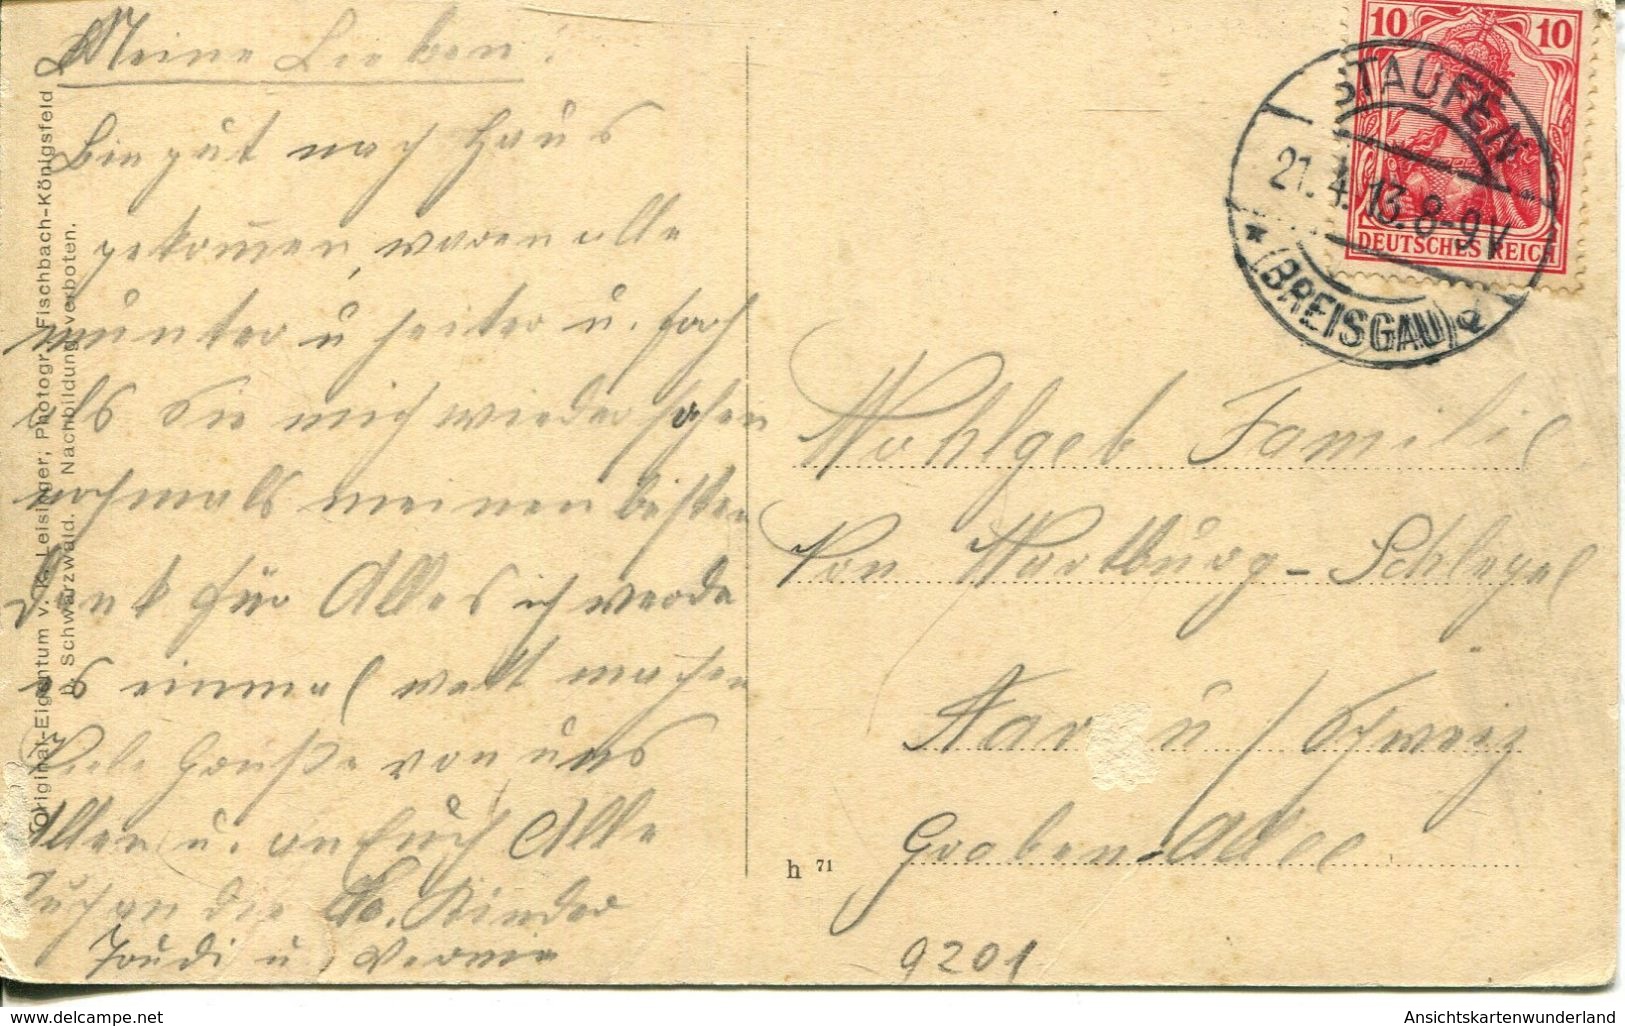 Meine Lieben!
Bin gut nach Haus
gekomen, waren alle
munter u heiter u. froh
als Sie mich wieder sahen
nochmals meinen besten
Dank für Alles ich werde
es einmal wett machen
Viele Grüße von uns
Allen u. an Euch Alle
die lb. Kinder
Trudi u,
Original-Eigentum v. K. Leisinger, Photogr. Fischbach-Königsfeld
b. Schwarzwald. Nachbildung verboten.
10 10
DEUTSCHES REICH
STAUFEN
21.4.13.8-9V
* (BREISGAU) a
Wohlgeb Familie
Von Wartburg-Schlegel
Aarau / Schweiz
Graben-Allee
h 71
9201
delcampe.net
Ansichtskartenwunderland